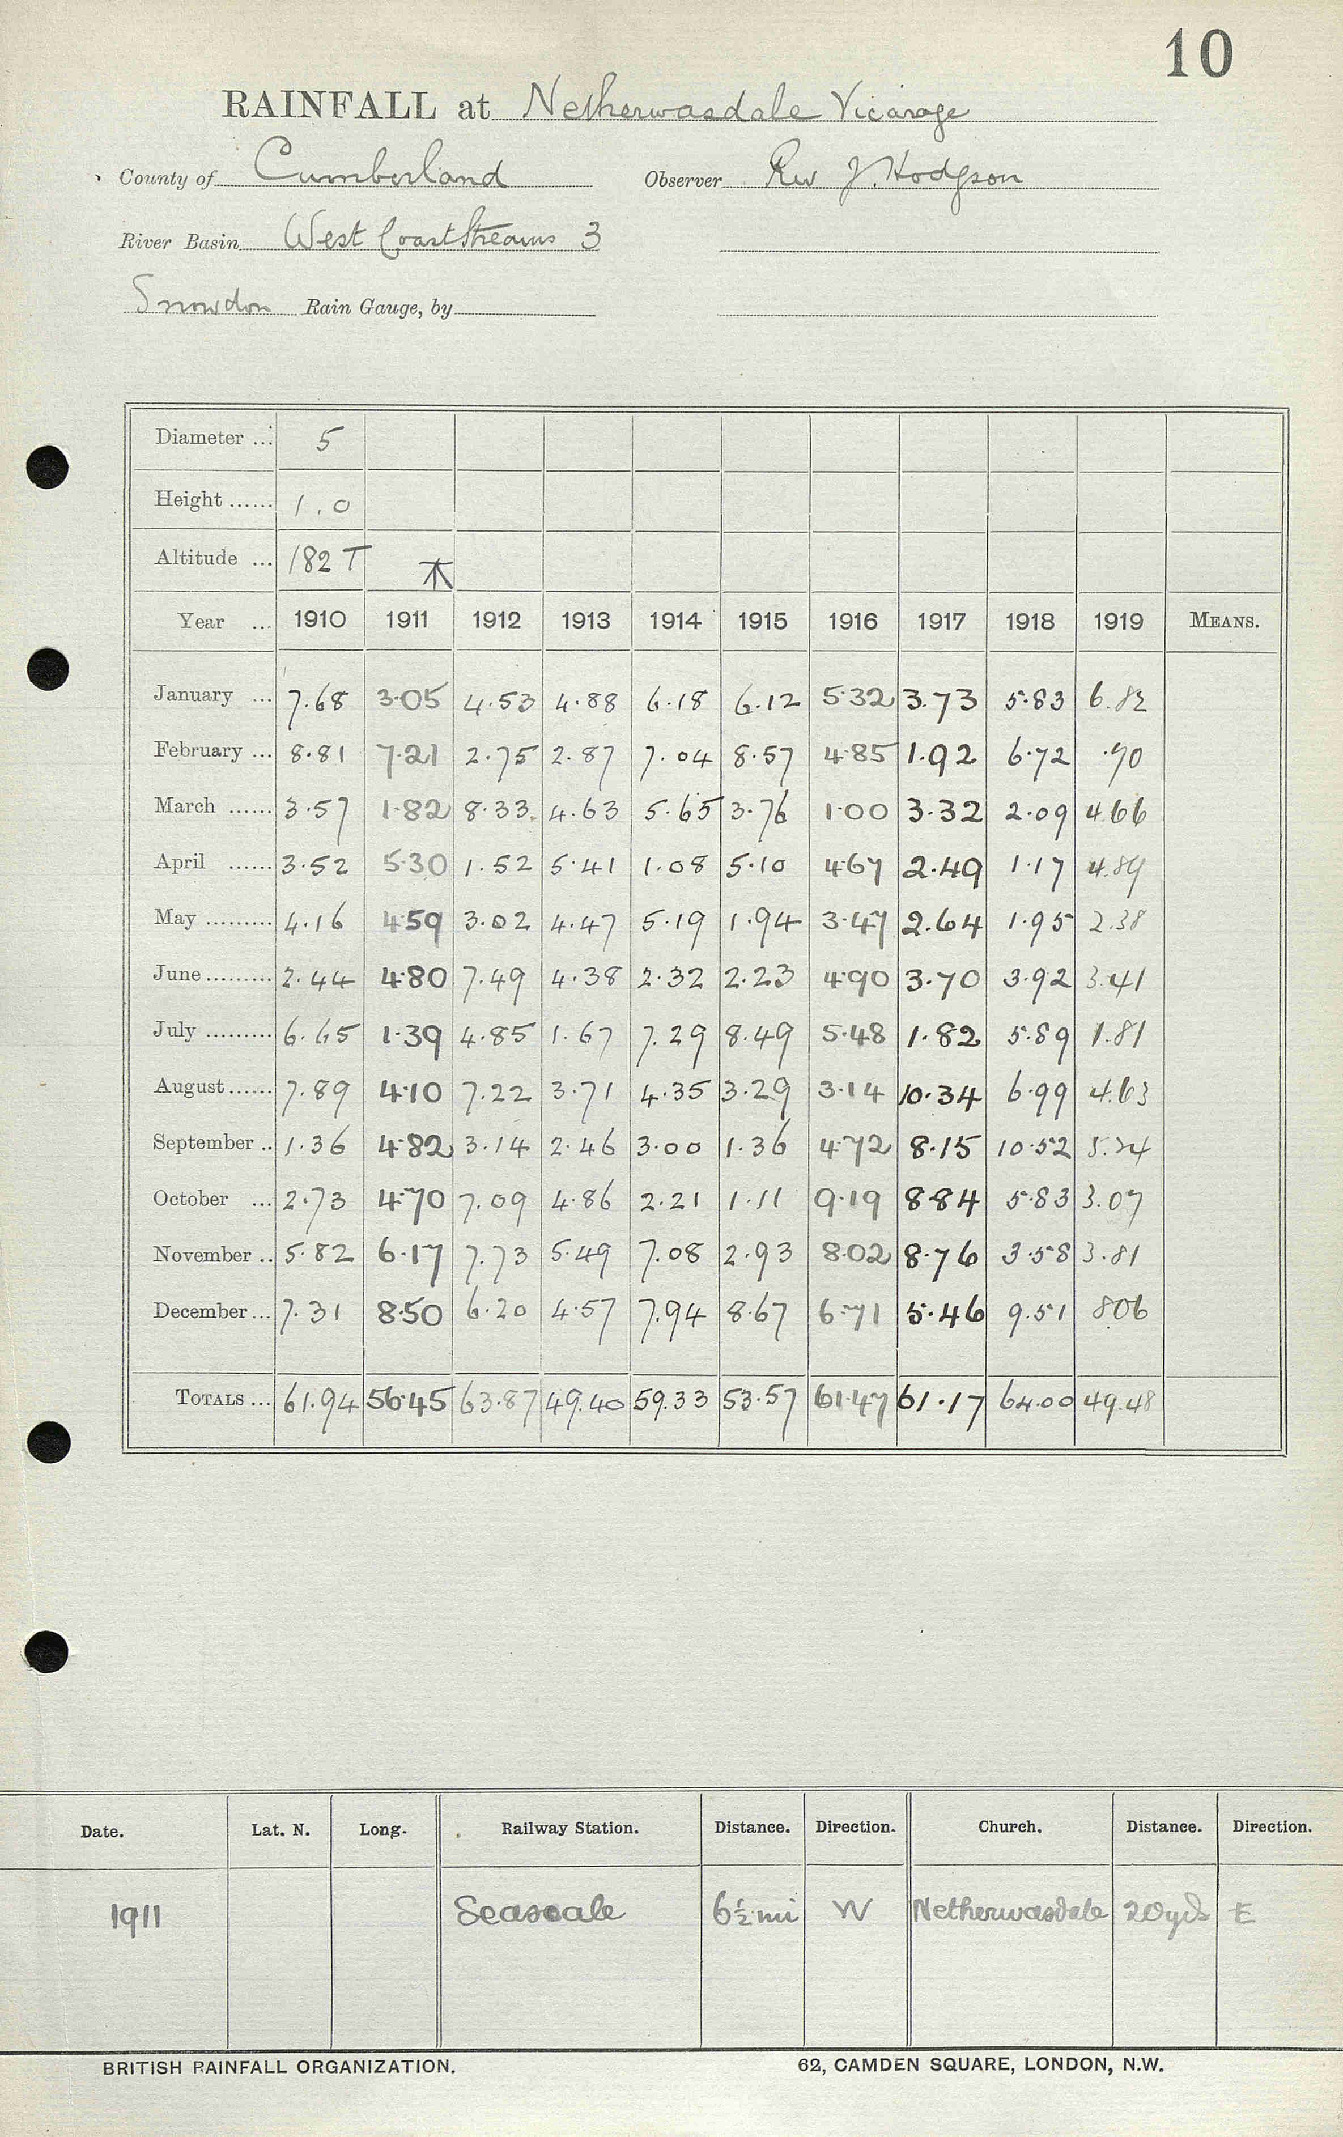 10
RAINFALL at Netherwasdale Vicarage
County of Cumberland Observer Rev J. Hodgson
River Basin West Coast Streams 3
Snowdon Rain Gauge, by
Diameter ... 5
Height ...... 1.0
Altitude ... 182 T
Year ... 1910 1911 1912 1913 1914 1915 1916 1917 1918 1919 MEANS.
January ... 7.68 3.05 4.53 4.88 6.18 6.12 5.32 3.73 5.83 6.82
February ... 8.81 7.21 2.75 2.87 7.04 8.57 4.85 1.92 6.72 .70
March ...... 3.57 1.82 8.33 4.63 5.65 3.76 1.00 3.32 2.09 4.66
April ...... 3.52 5.30 1.52 5.41 1.08 5.10 4.67 2.49 1.17 4.89
May ......... 4.16 4.59 3.02 4.47 5.19 1.94 3.47 2.64 1.95 2.38
June ......... 2.44 4.80 7.49 4.38 2.32 2.23 4.90 3.70 3.92 3.41
July ......... 6.65 1.39 4.85 1.67 7.29 8.49 5.48 1.82 5.89 1.81
August ...... 7.89 4.10 7.22 3.71 4.35 3.29 3.14 10.34 6.99 4.63
September .. 1.36 4.82 3.14 2.46 3.00 1.36 4.72 8.15 10.52 5.24
October ... 2.73 4.70 7.09 4.86 2.21 1.11 9.19 8.84 5.83 3.07
November .. 5.82 6.17 7.73 5.49 7.08 2.93 8.02 8.76 3.58 3.81
December ... 7.31 8.50 6.20 4.57 7.94 8.67 6.71 5.46 9.51 8.06
TOTALS ... 61.94 56.45 63.87 49.40 59.33 53.57 61.47 61.17 64.00 49.48
Date. Lat. N. Long. Railway Station. Distance. Direction. Church. Distance. Direction.
1911 Seascale 6½ mi W Netherwasdale 20 yds E
BRITISH RAINFALL ORGANIZATION. 62, CAMDEN SQUARE, LONDON, N.W.